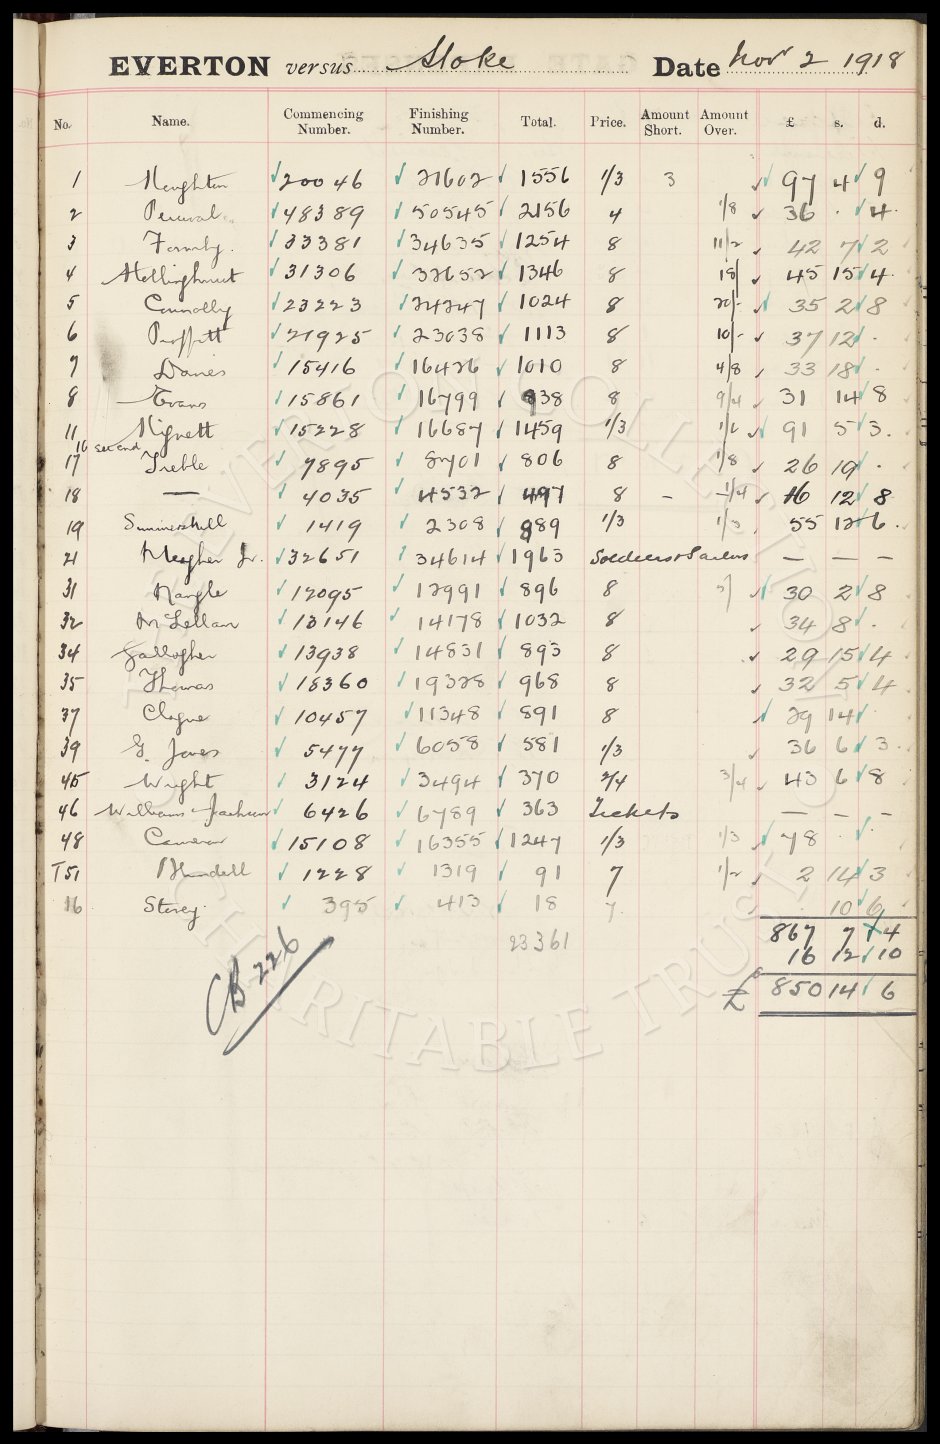 EVERTON versus Stoke Date Nov 2 1918
No. Name. Commencing Number. Finishing Number. Total. Price. Amount Short. Amount Over. £ s. d.
1 20046 21602 1556 1/3 3 97 4 9
2 Percival 48389 50545 2156 4 1/8 36 . 4
3 Formby. 33381 34635 1254 8 11/2 42 7 2
4 Hollinghurst 31306 32652 1346 8 18/ 45 15 4
5 Connolly 23223 24247 1024 8 20/- 35 2 8
6 Proffitt 21925 23038 1113 8 10/- 37 12 .
7 Davies 15416 16426 1010 8 4/8 33 18 .
8 Evans 15861 16799 938 8 9/4 31 14 8
11 Mignett 15228 16687 1459 1/3 91 5 3.
16 second
17 Treble 7895 8701 806 8 1/8 26 19 .
18 — 4035 4532 497 8 – 1/4 16 12 8
19 Summershill 1419 2308 889 1/3 1/3 55 12 6.
21 Meagher Jr. 32651 34614 1963 Soldiers & Sailors — — —
31 Nangle 12095 12991 896 8 30 2 8
32 McLellan 13146 14178 1032 8 34 8 .
34 Gallagher 13938 14831 893 8 29 15 4
35 Thomas 18360 19328 968 8 32 5 4
37 Clague 10457 11348 891 8 29 14
39 G. Jones 5477 6058 581 1/3 36 6 3
45 Wright 3124 3494 370 2/4 3/4 43 6 8
46 Williams Jackson 6426 6789 363 Tickets — – –
48 Cameron 15108 16355 1247 1/3 1/3 78 . .
T51 Blundell 1228 1319 91 7 1/2 2 14 3
16 Storey. 395 413 18 7 . 10 6
23361 867 7 4
CB 226 16 12 10
£ 850 14 6
EVERTON COLLECTION
CHARITABLE TRUST